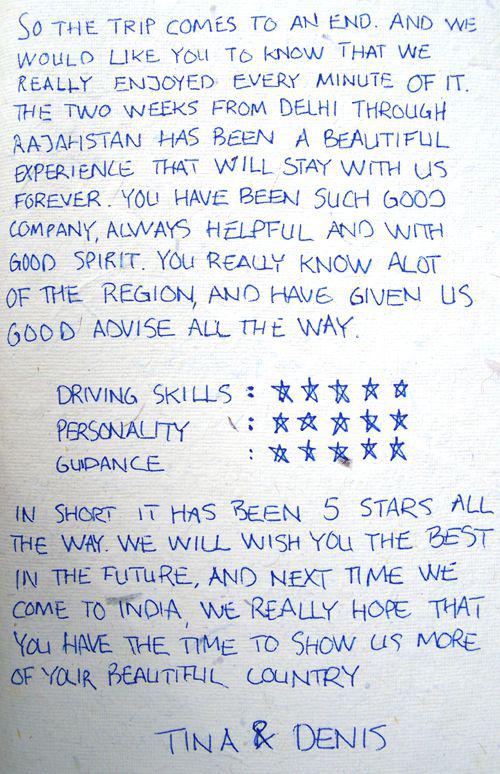 SO THE TRIP COMES TO AN END. AND WE
WOULD LIKE YOU TO KNOW THAT WE
REALLY ENJOYED EVERY MINUTE OF IT.
THE TWO WEEKS FROM DELHI THROUGH
RAJAHSTAN HAS BEEN A BEAUTIFUL
EXPERIENCE THAT WILL STAY WITH US
FOREVER. YOU HAVE BEEN SUCH GOOD
COMPANY, ALWAYS HELPFUL AND WITH
GOOD SPIRIT. YOU REALLY KNOW ALOT
OF THE REGION, AND HAVE GIVEN US
GOOD ADVISE ALL THE WAY.
DRIVING SKILLS : ☆ ☆ ☆ ☆ ☆
PERSONALITY : ☆ ☆ ☆ ☆ ☆
GUIDANCE : ☆ ☆ ☆ ☆ ☆
IN SHORT IT HAS BEEN 5 STARS ALL
THE WAY. WE WILL WISH YOU THE BEST
IN THE FUTURE, AND NEXT TIME WE
COME TO INDIA, WE REALLY HOPE THAT
YOU HAVE THE TIME TO SHOW US MORE
OF YOUR BEAUTIFUL COUNTRY
TINA & DENIS